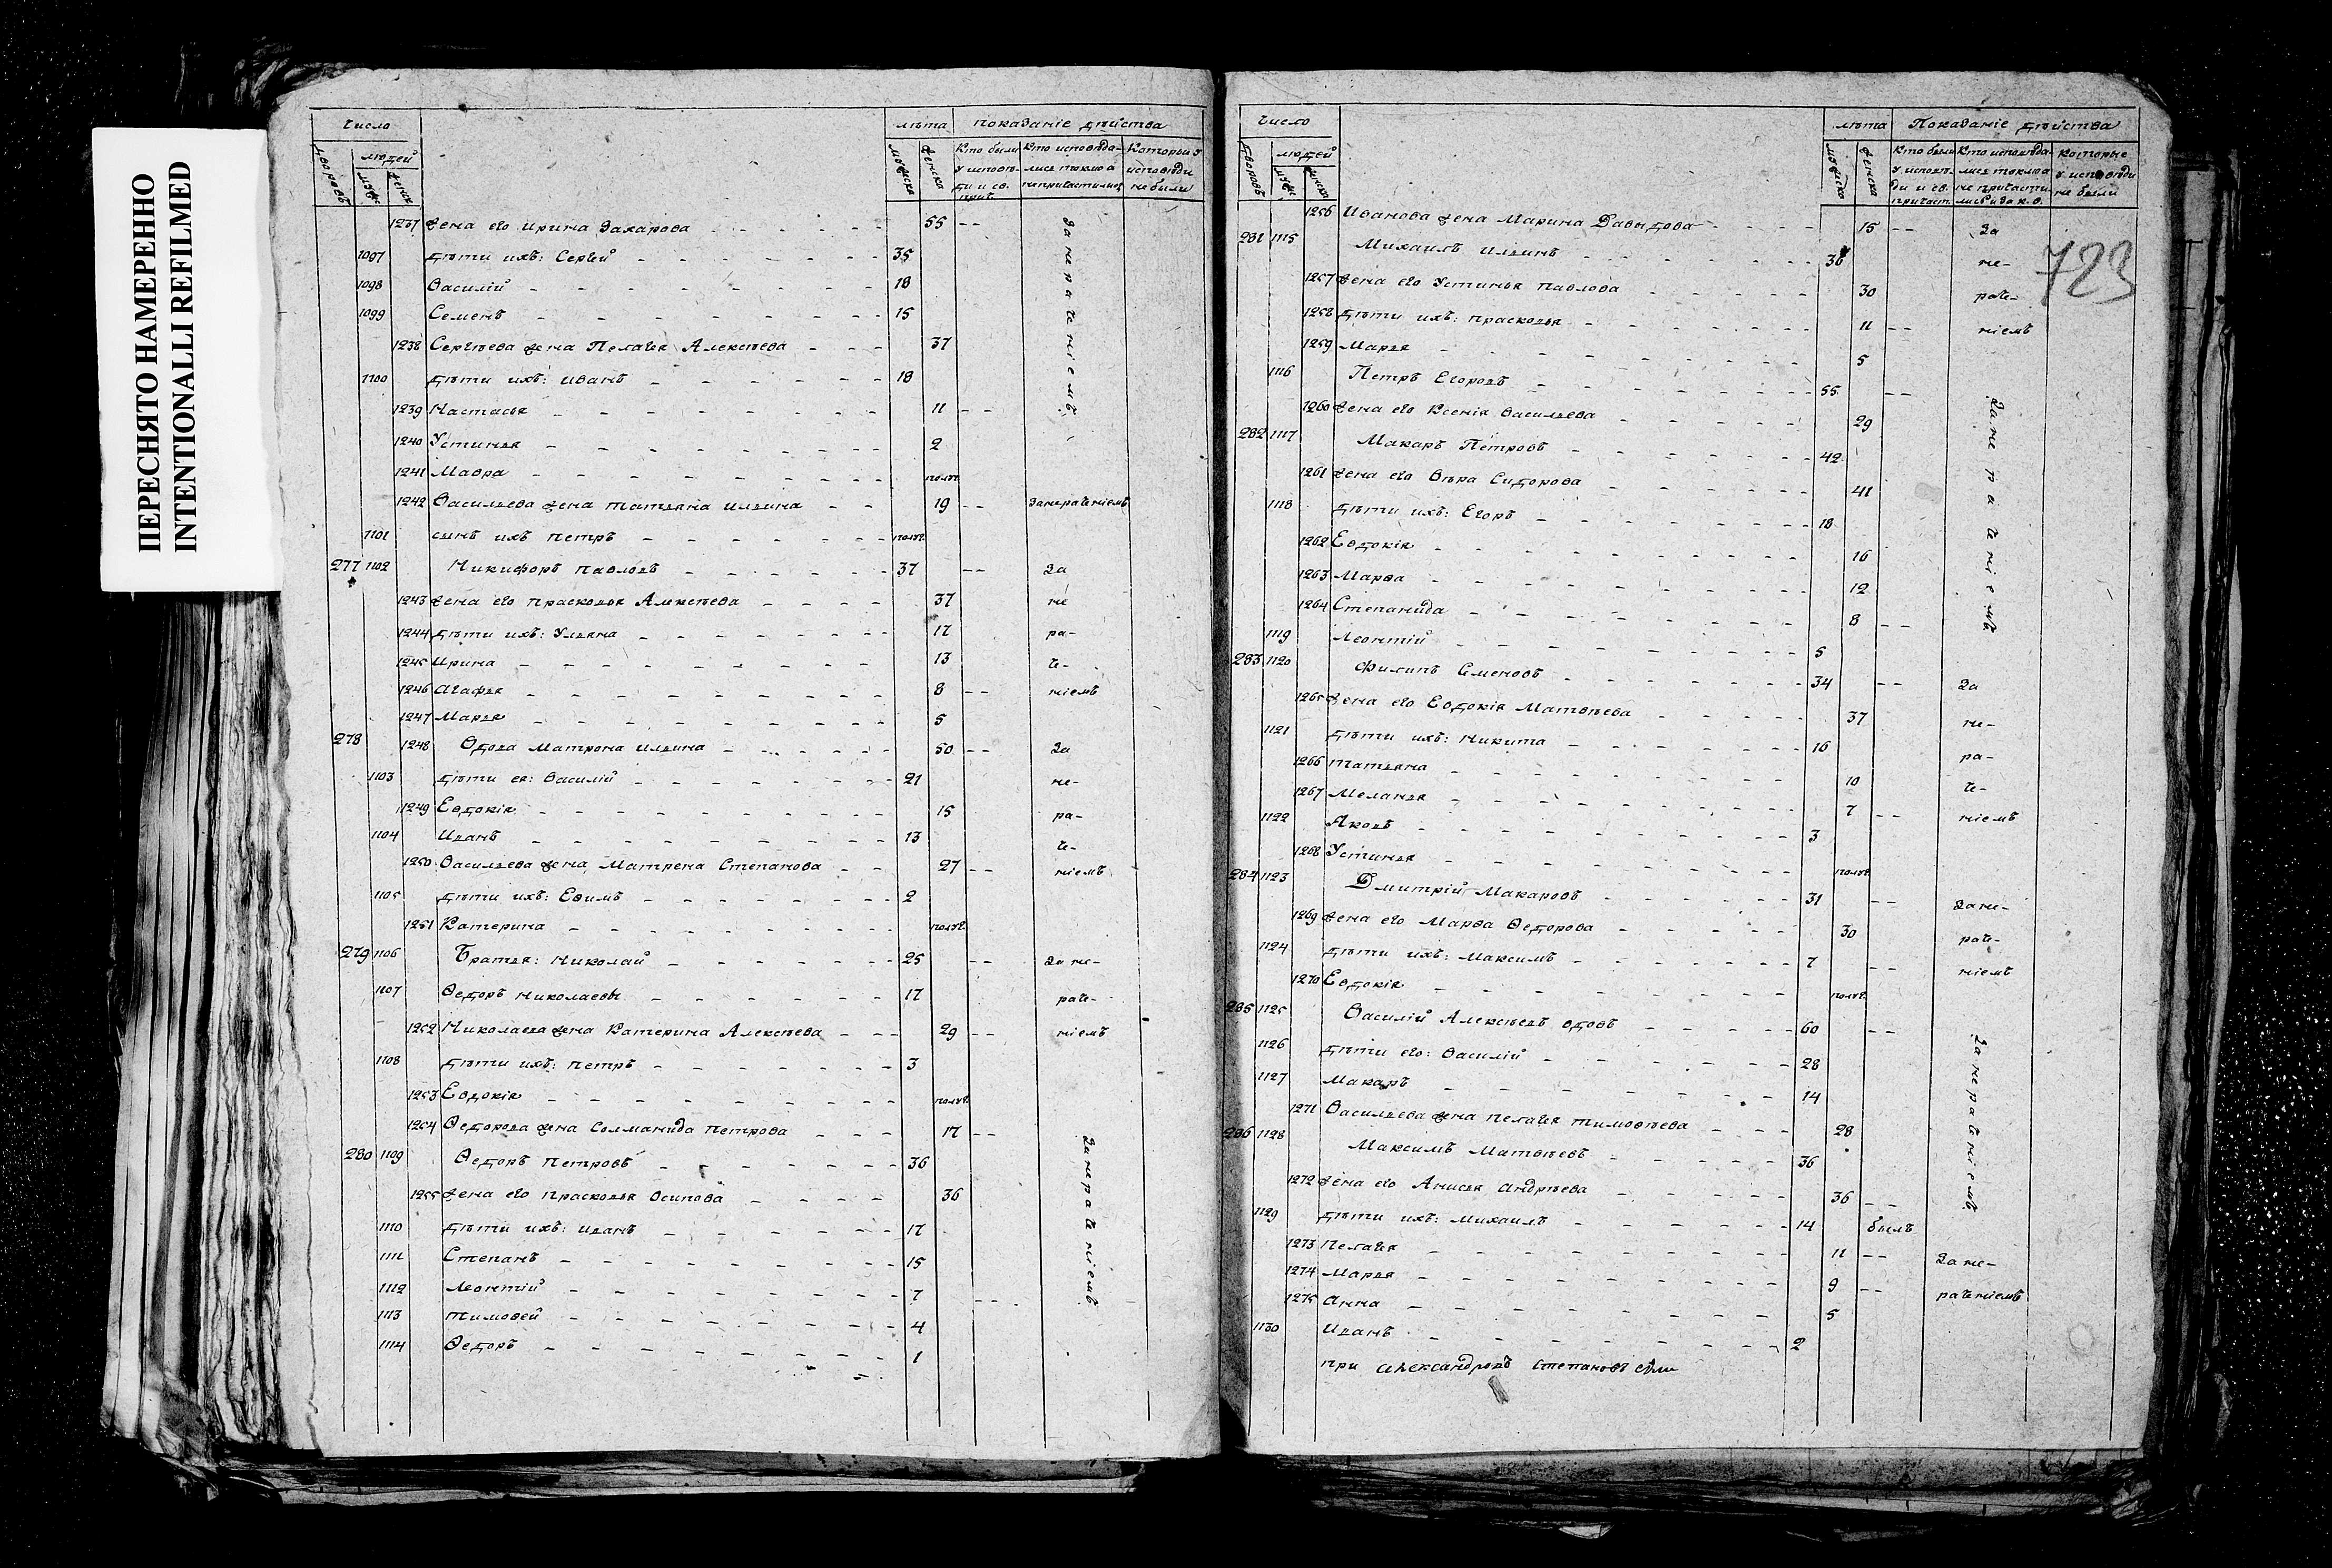 ПЕРЕСНЯТО НАМЕРЕННО
INTENTIONALLI REFILMED
Число лѣта показаніе дѣйства
дворовъ людей муж: женск: мужска женска Кто были у исповѣди и св. прич. Кто исповѣдались токмо а непричастились Которыи у исповѣди не были
1237 жена его Ирина Захарова 55 -- за нераченіемъ
1097 дѣти ихъ: Сергѣй 35
1098 Василій 18
1099 Семенъ 15
1238 Сергѣева жена Пелагея Алексѣева 37
1100 дѣти ихъ: Иванъ 18
1239 Настасья 11 --
1240 Устинья 2
1241 Мавра полуг.
1242 Васильева жена Татьяна Ильина 19 -- занераченіемъ
1101 сынъ ихъ Петръ полуг.
277 1102 Никифоръ Павловъ 37 -- За
1243 жена его Прасковья Алексѣева 37 не
1244 дѣти ихъ: Ульяна 17 ра-
1245 Ирина 13 че-
1246 Агафья 8 -- ніемъ
1247 Марья 5
278 1248 Вдова Матрона Ильина 50 -- За
1103 дѣти ея: Василій 21 не-
1249 Евдокія 15 ра-
1104 Иванъ 13 че-
1250 Васильева жена Матрена Степанова 27 -- ніемъ
1105 дѣти ихъ: Ефимъ 2
1251 Катерина полуг.
279 1106 Братья: Николай 25 -- За не-
1107 Ѳедоръ Николаевы 17 раче-
1252 Николаева жена Катерина Алексѣева 29 -- ніемъ
1108 дѣти ихъ: Петръ 3
1253 Евдокія полуг.
1254 Ѳедорова жена Соломанида Петрова 17 --
280 1109 Ѳедоръ Петровъ 36 За нераченіемъ
1255 жена его Прасковья Осипова 36
1110 дѣти ихъ: Иванъ 17
1111 Степанъ 15
1112 Леонтій 7 --
1113 Тимофей 4
1114 Ѳедоръ 1
Число лѣта Показаніе дѣйства
дворовъ людей муж: женск: мужска женска Кто были у исповѣди и св. причаст. Кто исповѣдались токмо а не причастились и за к. в. которые у исповѣди не были
723
1256 Иванова жена Марина Давыдова 15 -- За
281 1115 Михаилъ Ильинъ 36 не-
1257 жена его Устинья Павлова 30 раче-
1258 дѣти ихъ: Прасковья 11 -- ніемъ
1259 Марья 5
1116 Петръ Егоровъ 55 -- За нераченіемъ
1260 жена его Ксенія Васильева 29
282 1117 Макаръ Петровъ 42
1261 жена его Вѣра Сидорова 41
1118 дѣти ихъ: Егоръ 18
1262 Евдокія 16
1263 Марѳа 12
1264 Степанида 8 --
1119 Леонтій 5
283 1120 Филипъ Семеновъ 34 -- За
1265 жена его Евдокія Матвѣева 37 не-
1121 дѣти ихъ: Никита 16 ра-
1266 Татьяна 10 че-
1267 Меланья 7 -- ніемъ
1122 Яковъ 3
1268 Устинья полуг.
284 1123 Дмитрій Макаровъ 31 -- Зане-
1269 жена его Марѳа Ѳедорова 30 раче-
1124 дѣти ихъ: Максимъ 7 -- ніемъ
1270 Евдокія полуг.
285 1125 Василій Алексѣевъ вдовъ 60 -- За нераченіемъ
1126 дѣти его: Василій 28
1127 Макаръ 14
1271 Васильева жена Пелагея Тимоѳѣева 28
286 1128 Максимъ Матвѣевъ 36
1272 жена его Анисья Андрѣева 36 --
1129 дѣти ихъ: Михаилъ 14 былъ
1273 Пелагея 11 -- За не-
1274 Марья 9 -- раченіемъ
1275 Анна 5
1130 Иванъ 2